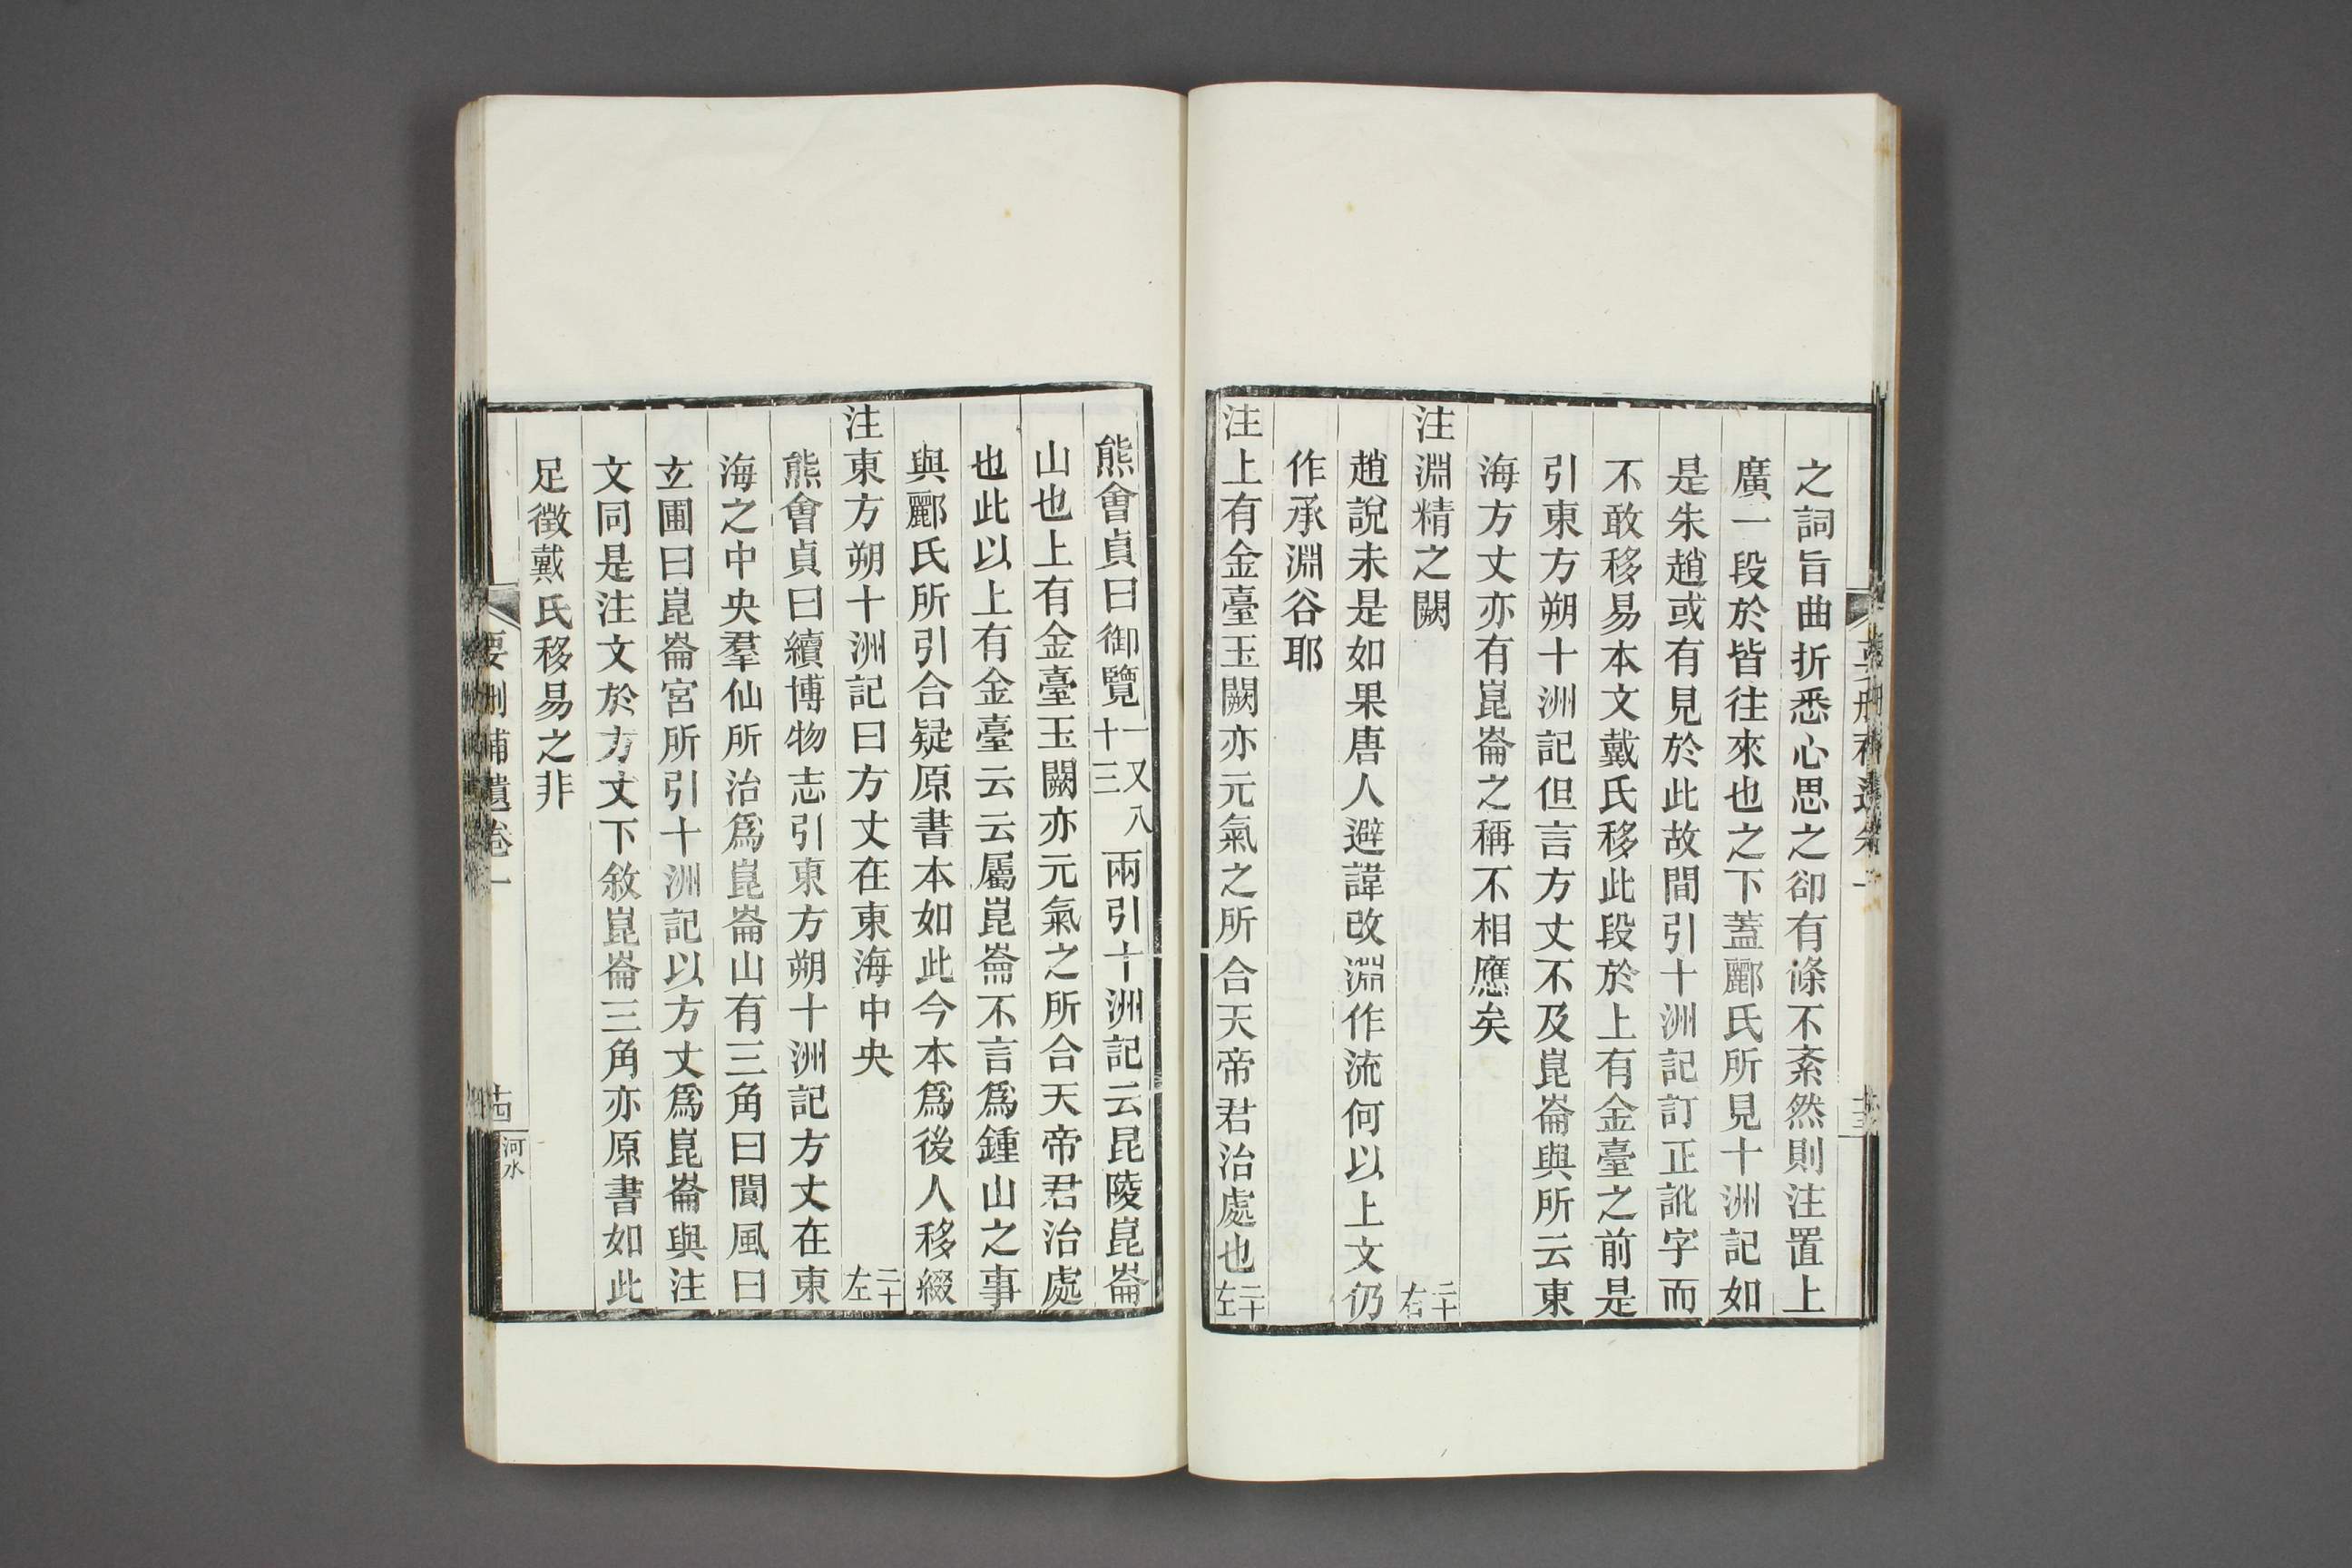 之詞旨曲折悉心思之卻有條不紊然則注置上
廣一段於皆往來也之下蓋酈氏所見十洲記如
是朱趙或有見於此故間引十洲記訂正訛字而
不敢移易本文戴氏移此段於上有金臺之前是
引東方朔十洲記但言方丈不及崑崙與所云東
海方丈亦有崑崙之稱不相應矣
注淵精之闕
二十右
趙說未是如果唐人避諱改淵作流何以上文仍
作承淵谷耶
注上有金臺玉闕亦元氣之所合天帝君治處也
二十左
熊會貞曰御覽
一又八
十三
兩引十洲記云昆陵崑崙
山也上有金臺玉闕亦元氣之所合天帝君治處
也此以上有金臺云云屬崑崙不言爲鍾山之事
與酈氏所引合疑原書本如此今本爲後人移綴
注東方朔十洲記曰方丈在東海中央
二十左
熊會貞曰續博物志引東方朔十洲記方丈在東
海之中央羣仙所治爲崑崙山有三角曰閬風曰
玄圃曰崑崙宮所引十洲記以方丈爲崑崙與注
文同是注文於方丈下敘崑崙三角亦原書如此
足徵戴氏移易之非
要刪補遺卷一
十四
河水